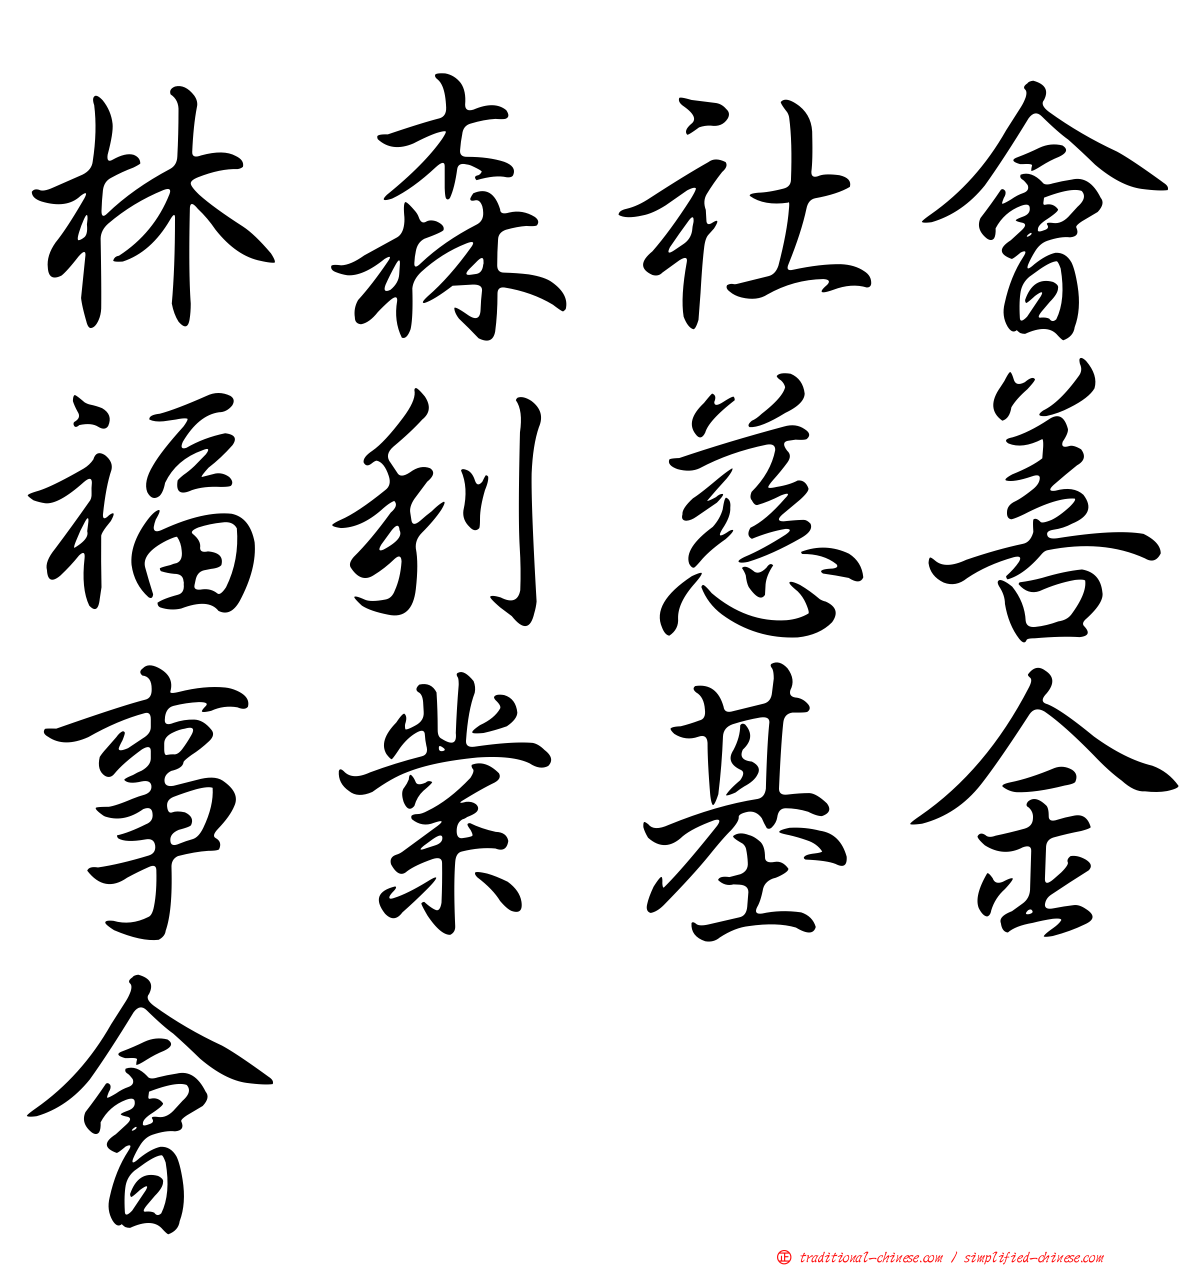 林森社會
福利慈善
事業基金
會
正 traditional-chinese.com / simplified-chinese.com